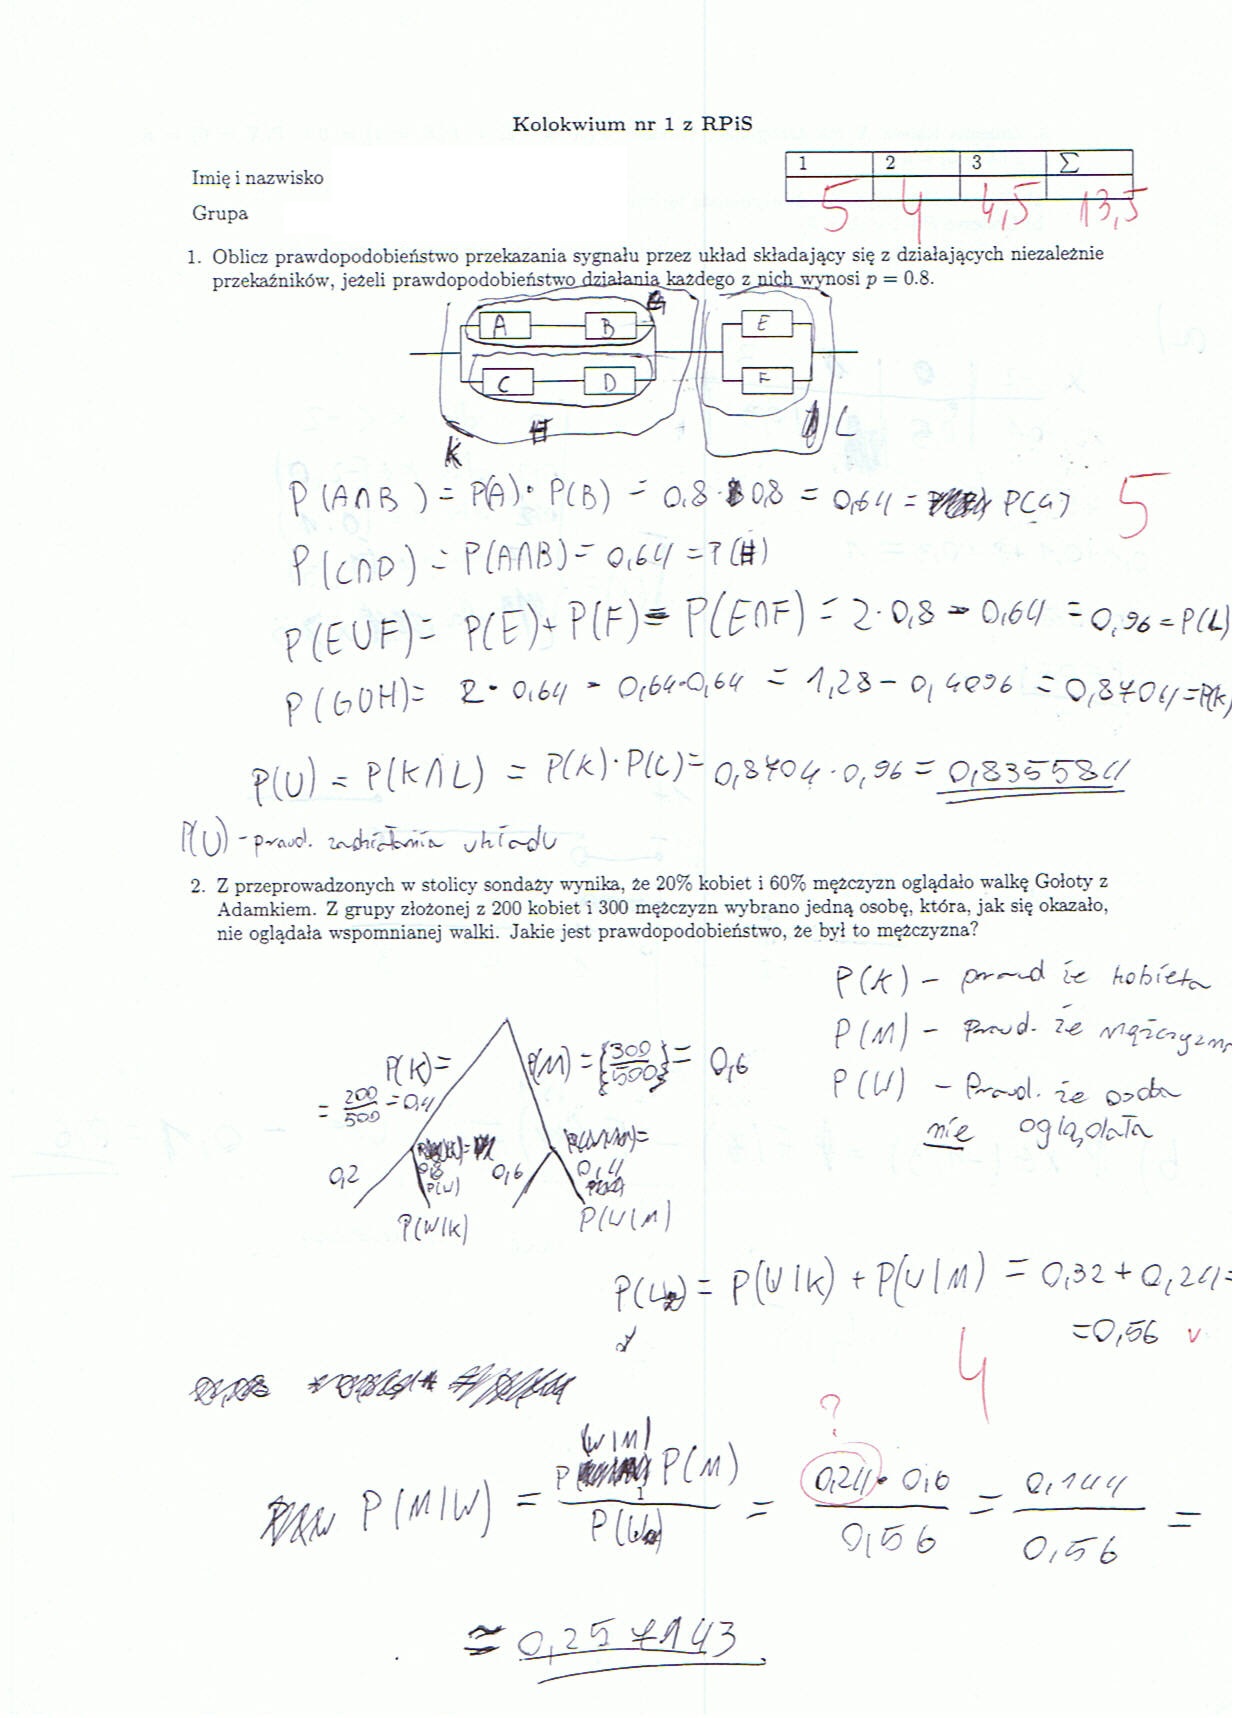 Kolokwium nr 1 z RPiS
1 2 3 Σ
Imię i nazwisko
5 4 4,5 13,5
Grupa
1. Oblicz prawdopodobieństwo przekazania sygnału przez układ składający się z działających niezależnie
przekaźników, jeżeli prawdopodobieństwo działania każdego z nich wynosi p = 0.8.
G
A B E
C D F
K H L
P(A∩B) = P(A)·P(B) = 0,8·0,8 = 0,64 = P(G)
5
P(C∩D) = P(A∩B) = 0,64 = P(H)
P(E∪F) = P(E)+P(F) - P(E∩F) = 2·0,8 - 0,64 = 0,96 = P(L)
P(G∪H) = 2·0,64 - 0,64·0,64 = 1,28 - 0,4096 = 0,8704 = P(K)
P(U) = P(K∩L) = P(K)·P(L) = 0,8704·0,96 = 0,835584
P(U) - prawd. zadziałania układu
2. Z przeprowadzonych w stolicy sondaży wynika, że 20% kobiet i 60% mężczyzn oglądało walkę Gołoty z
Adamkiem. Z grupy złożonej z 200 kobiet i 300 mężczyzn wybrano jedną osobę, która, jak się okazało,
nie oglądała wspomnianej walki. Jakie jest prawdopodobieństwo, że był to mężczyzna?
P(K) - prawd że kobieta
P(M) - prawd. że mężczyzna
P(W) - Prawd. że osoba
nie oglądała
P(K)= P(M) = {300/500} = 0,6
= 200/500 = 0,4
0,2 0,8 0,6 0,4
P(W)
P(W|K) P(W|M)
P(W) = P(W|K) + P(W|M) = 0,32 + 0,24 =
= 0,56 v
4
?
P(M|W) = P(W|M) P(M) / P(W) = 0,24·0,6 / 0,56 = 0,144 / 0,56 =
≅ 0,257143